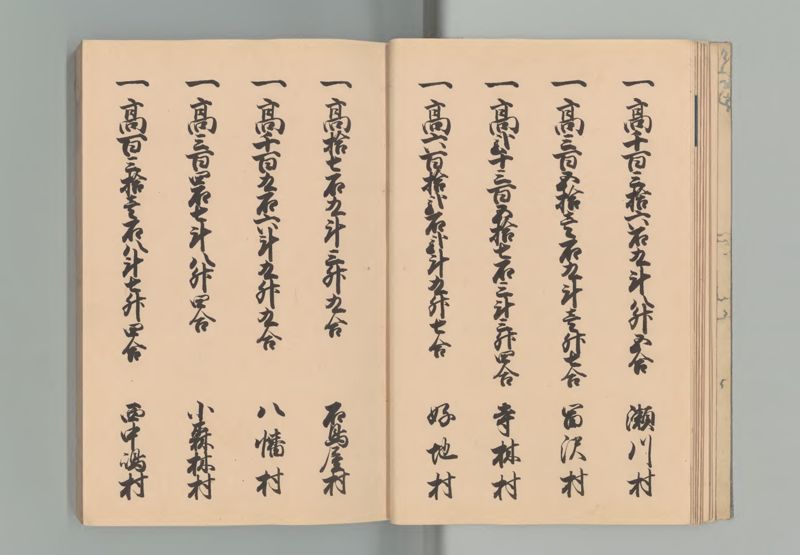 一高千百三拾六石九斗八升五合 瀬川村
一高三百五拾壱石九斗壱升七合 冨沢村
一高弐千三百五拾七石三斗三升四合 寺林村
一高六百拾弐石弐斗九升七合 好地村
一高拾七石九斗三升九合 石鳥屋村
一高千百五石六斗九升九合 八幡村
一高三百四石七斗八升四合 小森林村
一高百三拾壱石八斗七升四合 西中嶋村